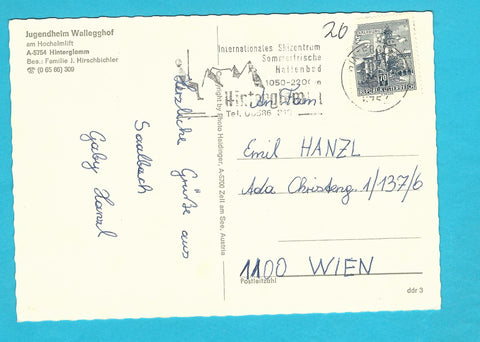 Jugendheim Wallegghof
am Hochalmlift
A-5754 Hinterglemm
Bes.: Familie J. Hirschbichler
☎ (0 65 86) 309
Herzliche Grüße aus
Saalbach
Gaby Hanzl
Copyright by Photo Haidinger, A-5700 Zell am See, Austria
20
Internationales Skizentrum
Sommerfrische
Hallenbad
1050-2200m
Hinterglemm
Tel. 06586
REPUBLIK ÖSTERREICH
An Fam.
Emil HANZL
Ada Christeng. 1/137/6
1100 WIEN
Postleitzahl
ddr 3